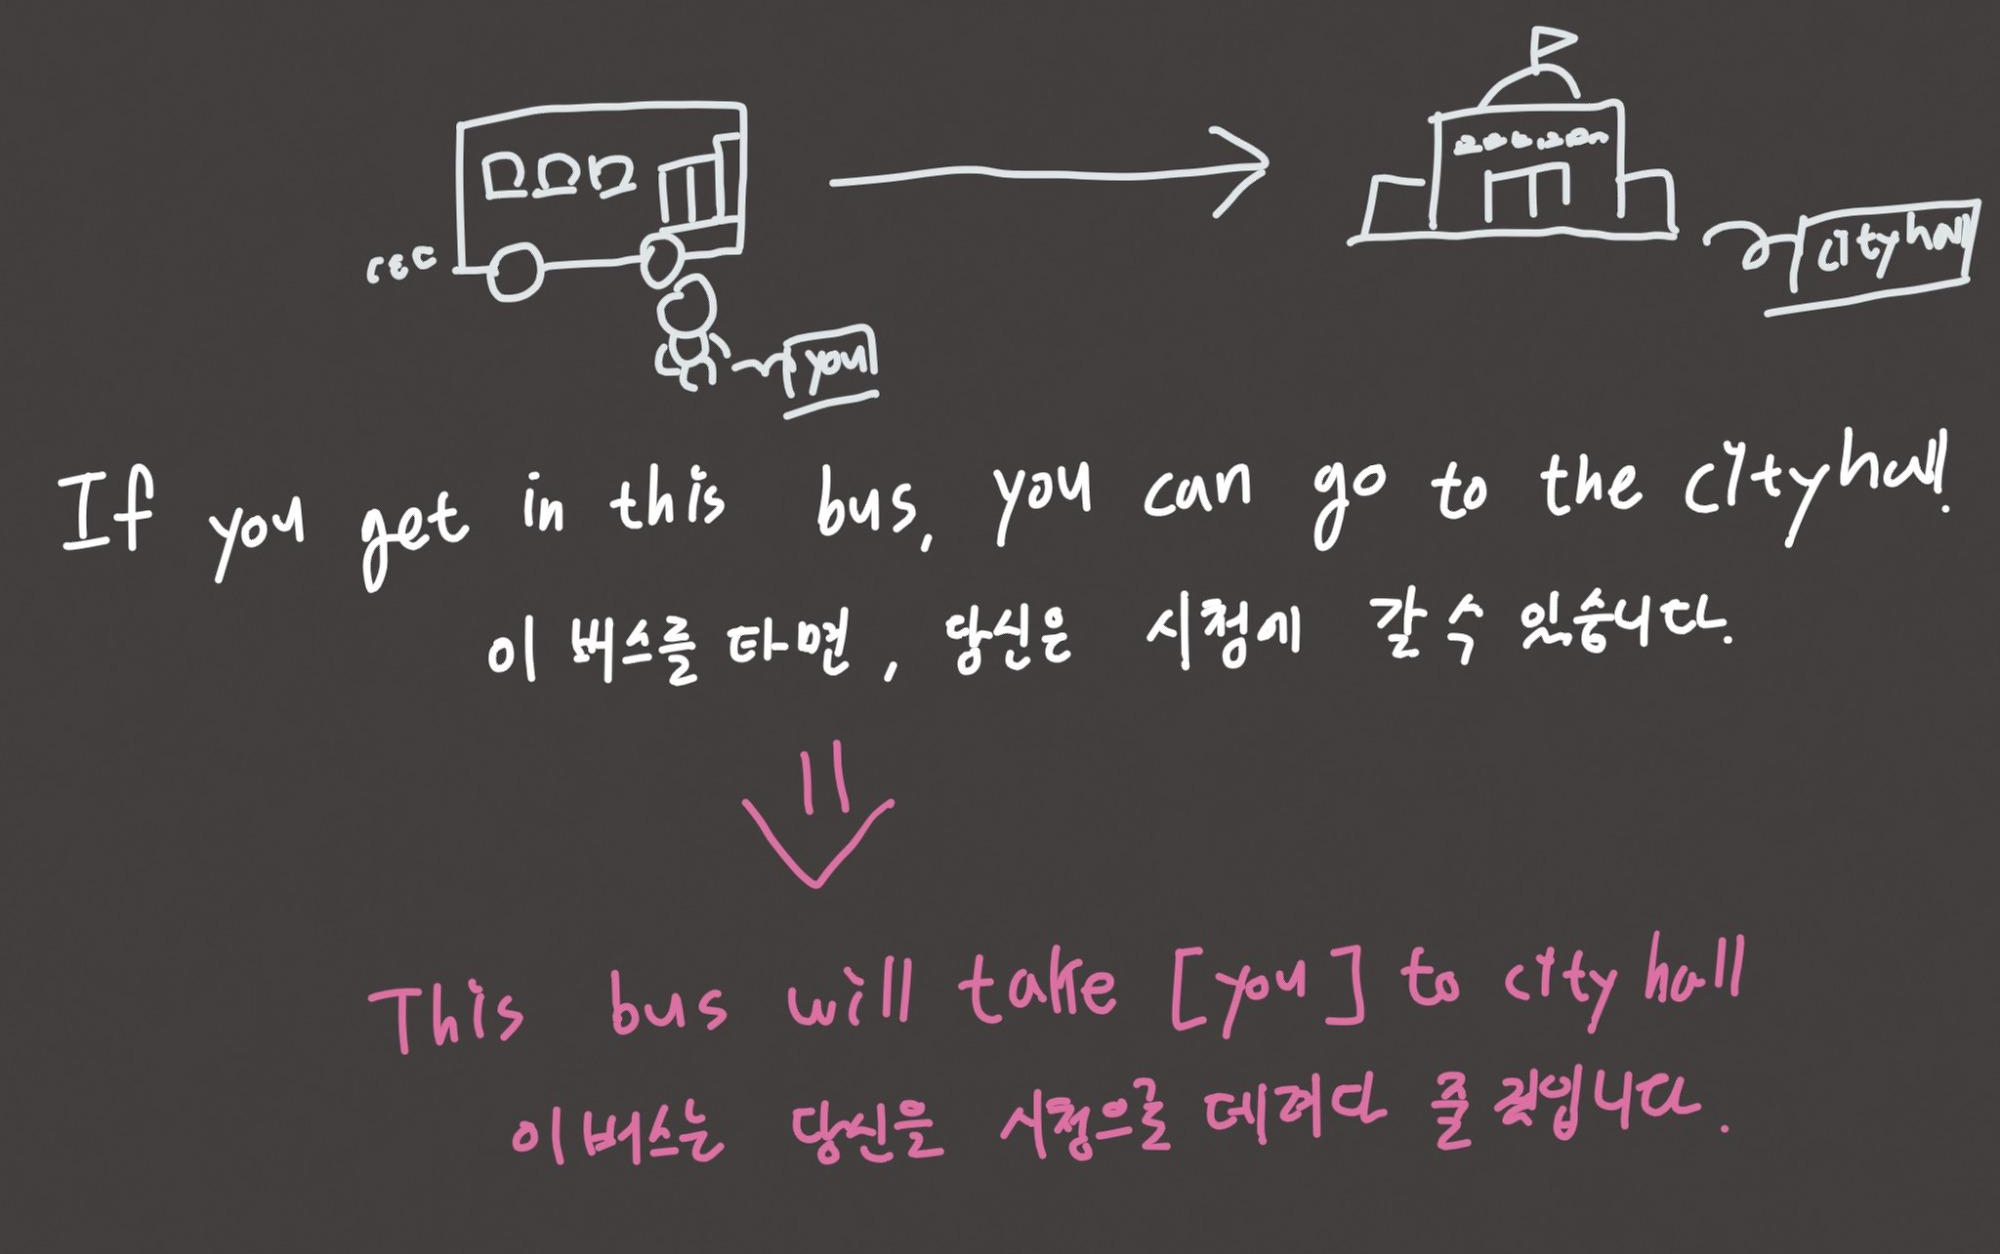 cityhall
you
If you get in this bus, you can go to the cityhall.
이 버스를 타면, 당신은 시청에 갈 수 있습니다.
This bus will take [you] to city hall
이 버스는 당신을 시청으로 데려다 줄 것입니다.